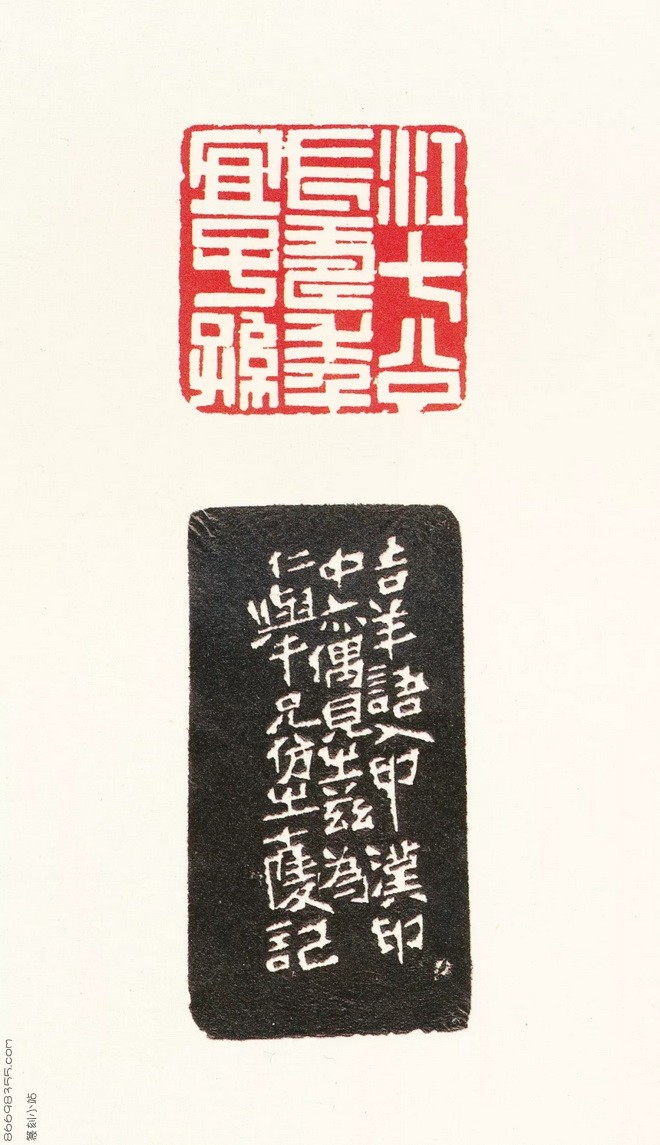 江七公
長壽年
宜子孫
吉羊語入印漢印
中亦偶見之茲為
仁舉兄仿之記
86698355.com
篆刻小站